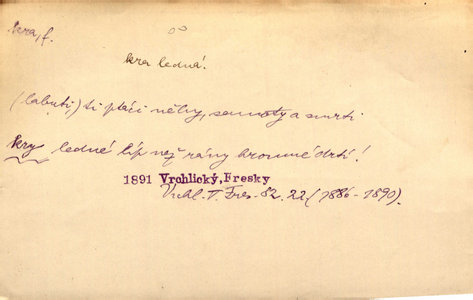 kra, f.
kra ledná!
(labuti,) ti ptáci něhy, samoty a smrti
kry ledné líp než rány hromné drtí!
1891 Vrchlický, Fresky
Vrchl. T. Fres. 82. 22 (1886-1890).